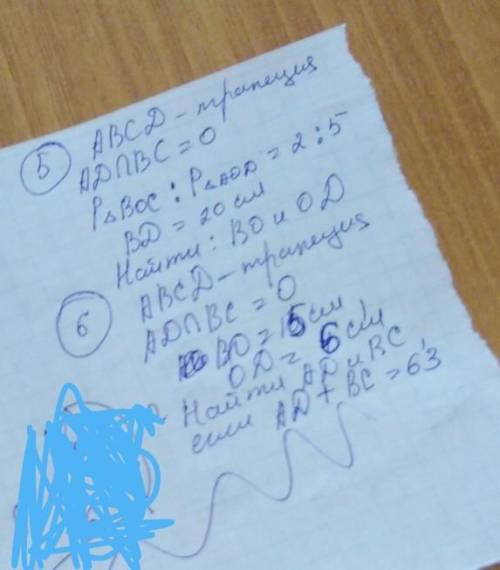 5 ABCD - трапеция
AD∩BC = O
P△BOC : P△AOD = 2 : 5
BD = 20 см
Найти: BO и OD
6 ABCD - трапеция
AD∩BC = O
BO = 15 см
OD = 6 см
Найти AD и BC,
если AD + BC = 63